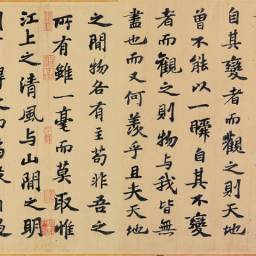 自其變者而觀之則天地
曾不能以一瞬自其不變
者而觀之則物與我皆無
盡也而又何羨乎且夫天地
之間物各有主苟非吾之
所有雖一毫而莫取惟
江上之清風与山間之明